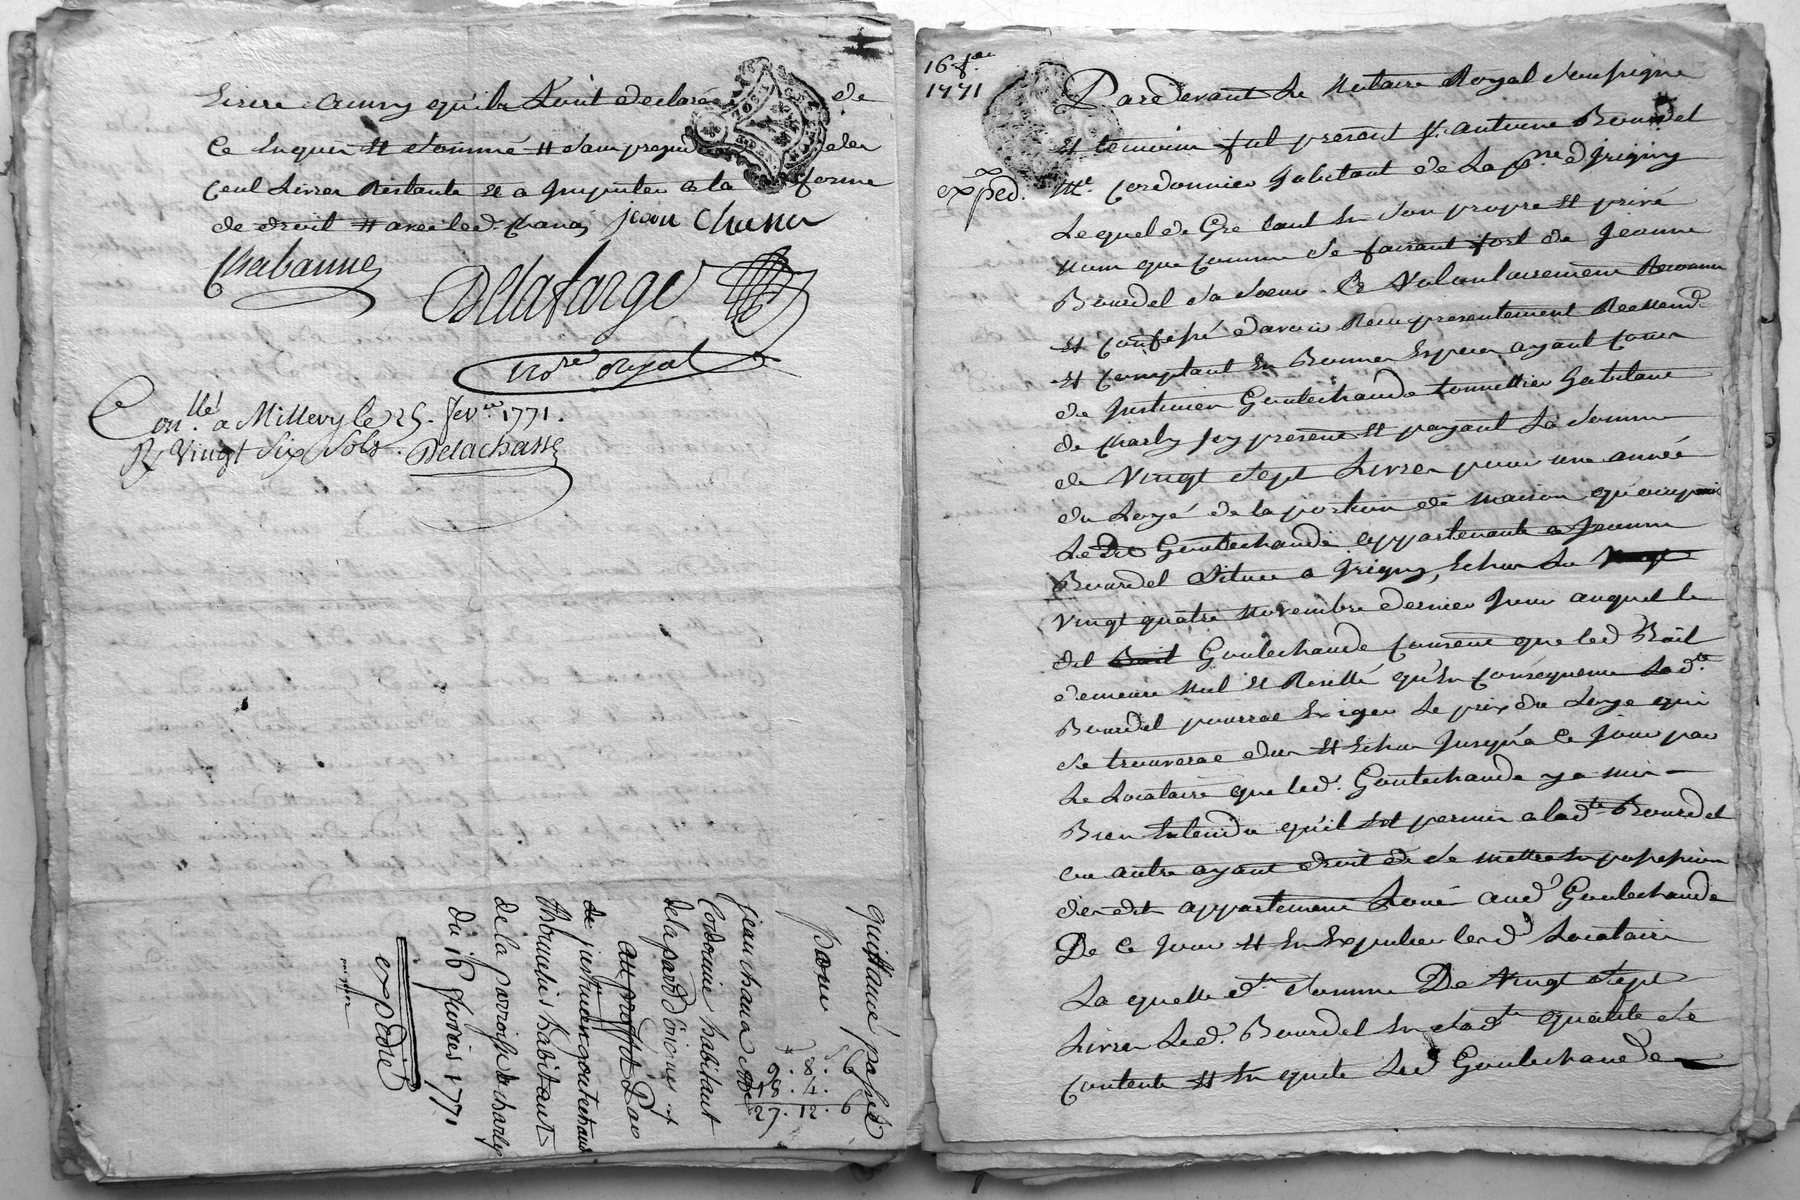 Lirere aussy qu'ils l'ont declaré de
ce Enquis et sommé et sans prejud des
cent Livres Restante et a Imputer a la forme
de droit et avec led. Chana, jean Chana
Chabanne
Delafarge
No.re Royal
Con.llé a Millery le 25. fev.er 1771.
R Vingt Six Sols. Delachasse
quittance passé
pour
jean chana
Cordonnie habitant
de la par d'irignis et
au proffot Par
de justinien goutechaud
thounelies habitant
de la parroisse charly
du 16 fevries 1771
expedié
9. 8. 6
18. 4.
27. 12. 6
16 f.er
1771
exped.
Pardevant Le Notaire Royal Soussigné
et temoins fut present S.r antoine Bourdel
M.e Cordonnier habitant de La p.sse d'Irigny
Lequel de Gré tant En son propre et privé
nom que comme se faisant fort de Jeanne
Bourdel sa soeur. Et Volontairement Reconnu
et confessé d'avoir Reçu presentement Reellem.t
et comptant En Bonnes Especes ayant cours
de Justinien Goutechaude tonnellier habitant
de Charly Icy present et payant La Somme
de Vingt Sept Livres pour une année
du Loyé de la portion de maison qu'occupoit
Le dit Goutechaude appartenante a Jeanne
Bourdel Située a Irigny, Echue Le Vingt
Vingt quatre Novembre dernier Jour auquel le
dit Bail Goutechaude consent que led Bail
demeure Nul et Resillé qu'En consequence Lad.te
Bourdel pourrae Exiger Le prix du Loye qui
se trouverae dûe et Echue Jusqu'a ce Jour par
Le Locataire que led. Goutechaude y a mis
Bien Entendu qu'il est permis a lad.te Bourdel
ou autre ayant droit de se mettre En possession
desdits appartement Loués aud Goutechaude
De ce Jour et En Expulser lesd Locataire
La quelle d.e Somme De Vingt Sept
Livres Led. Bourdel En lad.te qualité s'e
contente et En quite Led Goutechaude